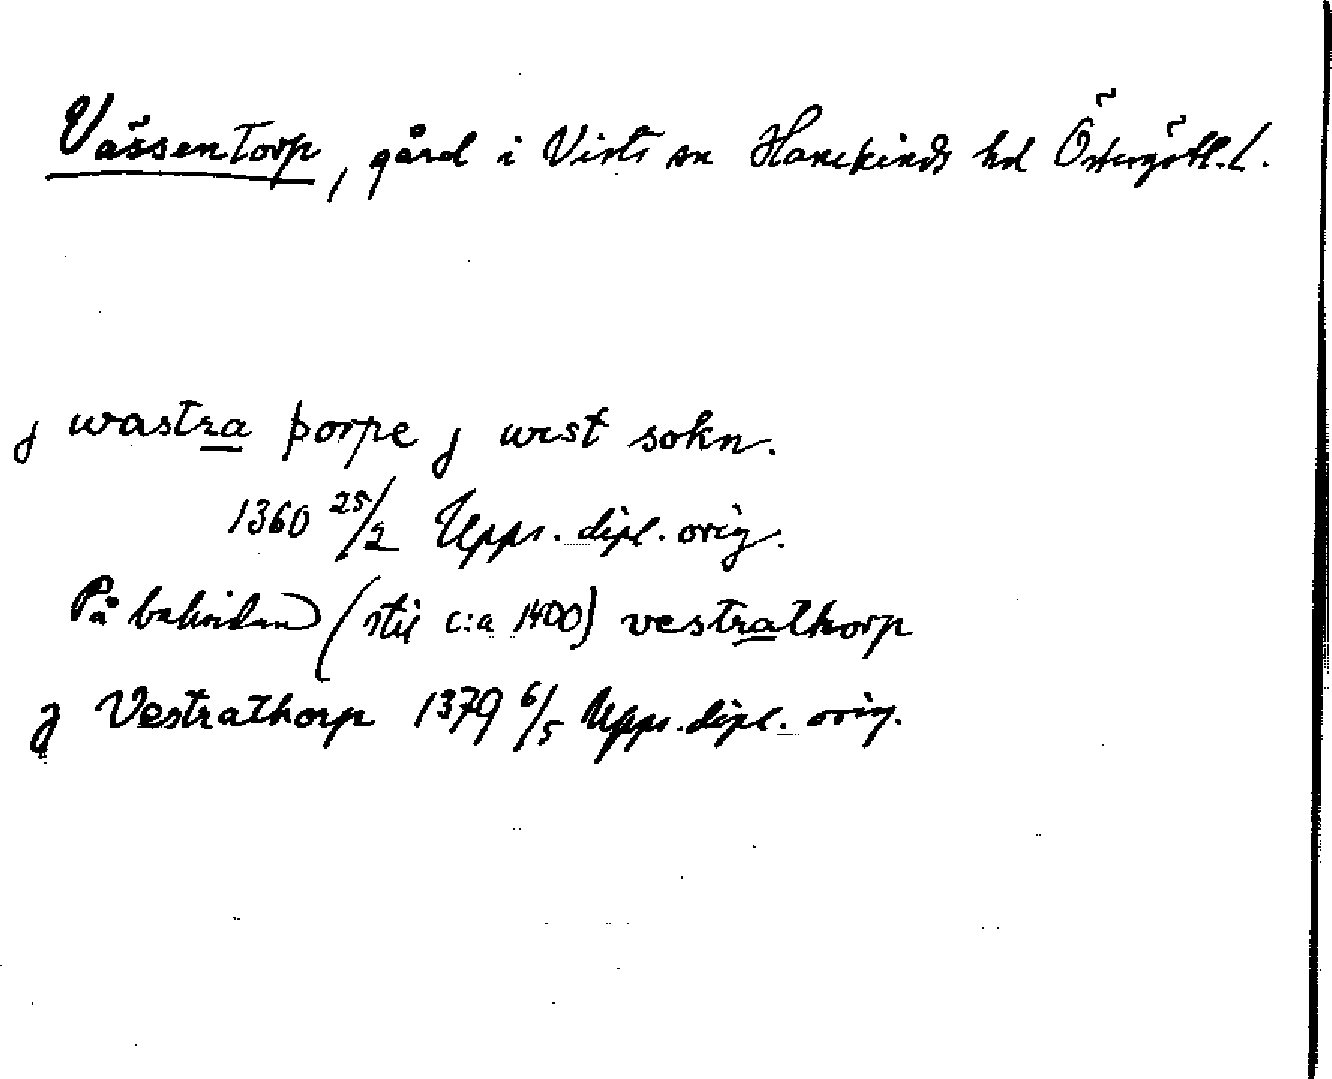 Vässentorp, gård i Vists sn Hanekinds hd Östergötl. l.
j wastra þorpe j west sokn.
1360 25/2 Upps. dipl. orig.
På baksidan (stil c:a 1400) vestrathorp
j Vestrathorp 1379 6/5 Upps. dipl. orig.